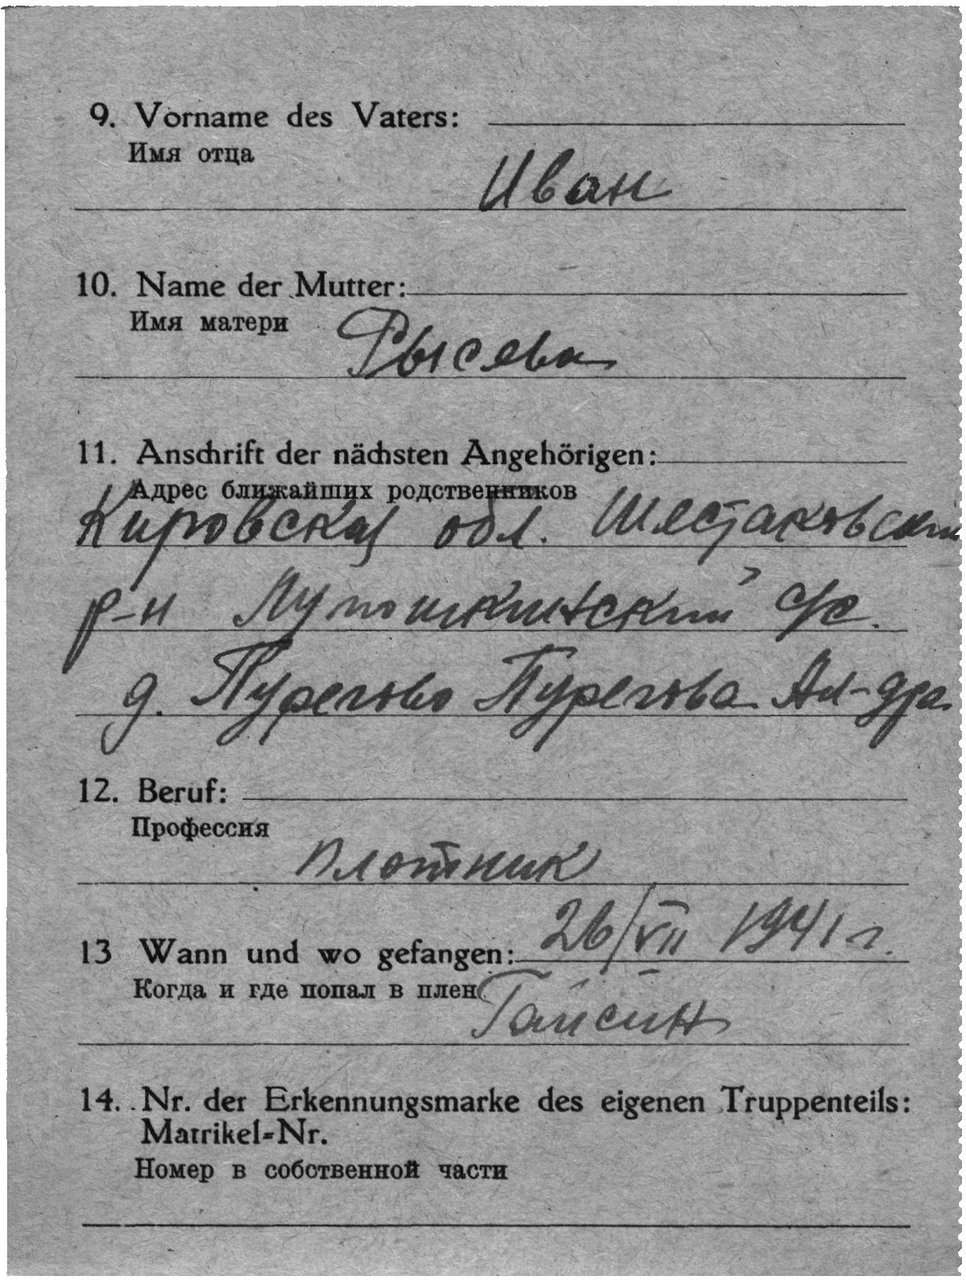 9. Vorname des Vaters:
Имя отца
Иван
10. Name der Mutter:
Имя матери
Рысева
11. Anschrift der nächsten Angehörigen:
Адрес ближайших родственников
Кировская обл. Шестаковский
р-н с/с.
д. Пурегово Пурегова Ал-дра
12. Beruf:
Профессия
плотник
26/VII 1941 г.
13 Wann und wo gefangen:
Когда и где попал в плен
Гайсин
14. Nr. der Erkennungsmarke des eigenen Truppenteils:
Matrikel-Nr.
Номер в собственной части